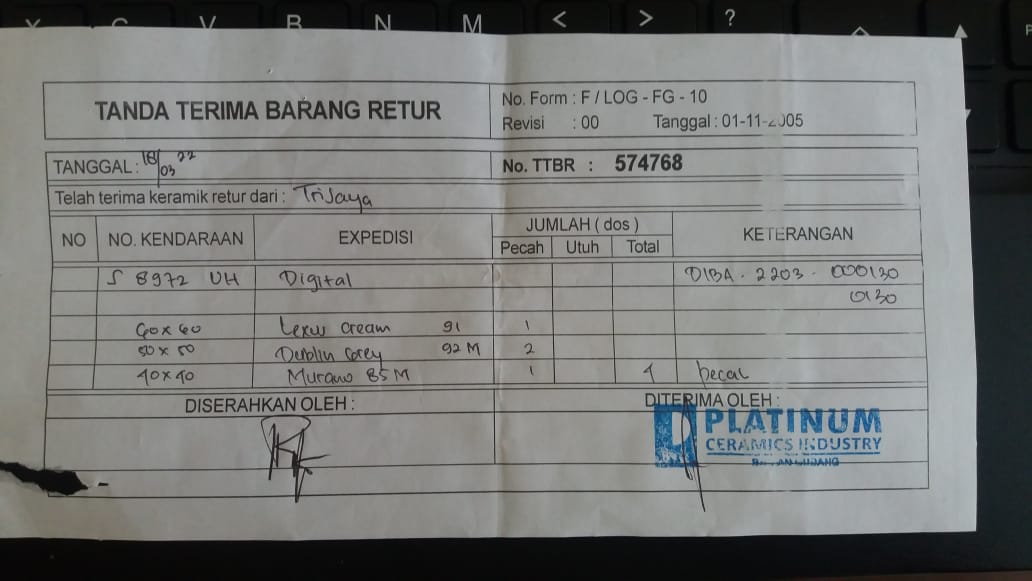 X C V B N M < > ?
TANDA TERIMA BARANG RETUR
No. Form : F / LOG - FG - 10
Revisi : 00 Tanggal : 01-11-2005
TANGGAL : 18/03 22
No. TTBR : 574768
Telah terima keramik retur dari : TriJaya
NO NO. KENDARAAN EXPEDISI JUMLAH ( dos ) KETERANGAN
Pecah Utuh Total
S 8972 UH Digital DIBA . 2203 . 000130
0130
60x60 Lexus cream 91 1
50x50 Dublin Grey 92 M 2
40x40 Murano 85 M 1 4 pecah
DISERAHKAN OLEH :
DITERIMA OLEH :
PLATINUM
CERAMICS INDUSTRY